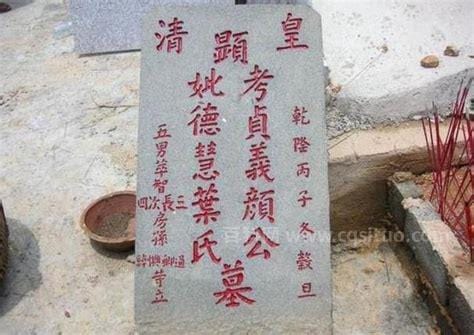 皇顯清
乾隆丙子冬穀旦
考貞義顏公
妣德慧葉氏
墓
五男萃智
三長
次四
房孫
等立
www.cqsituo.com